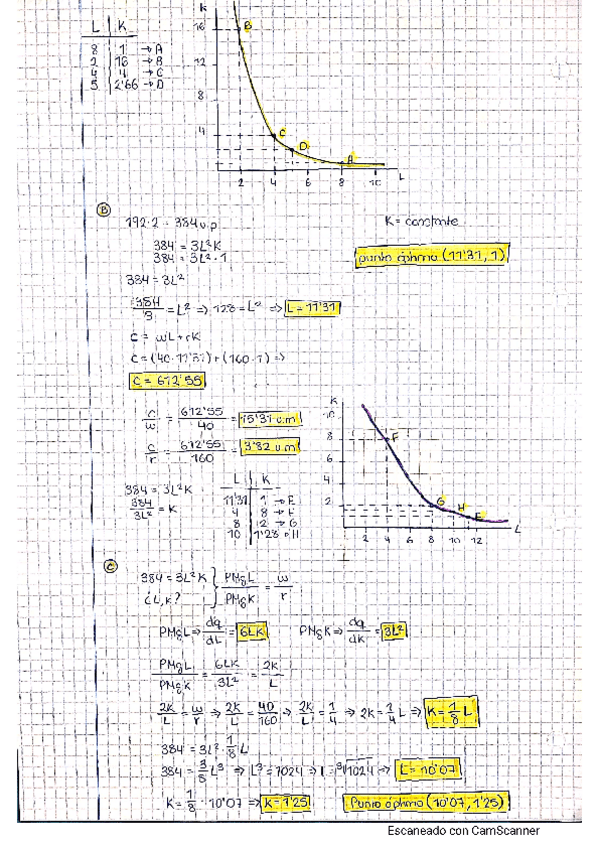 L | K
8 | 1 → A
2 | 16 → B
4 | 4 → C
5 | 2'66 → D
K
16
12
8
4
B
C
D
A
2 4 6 8 10 L
B
192·2 = 384 u.p
K = constante
384 = 3L²K
384 = 3L²·1
punto óptimo (11'31, 1)
384 = 3L²
384/3 = L² ⇒ 128 = L² ⇒ L = 11'31
C = wL + rK
C = (40·11'31) + (160·1) ⇒
C = 612'55
C/w = 612'55/40 = 15'31 u.m
C/r = 612'55/160 = 3'82 u.m
384 = 3L²K
384/3L² = K
L | K
11'31 | 1 → E
4 | 8 → F
8 | 12 → G
10 | 1'28 → H
K
10
8
6
4
2
F
G
H
E
2 4 6 8 10 12 L
C
384 = 3L²K } PMgL/PMgK = w/r
¿L, K?
PMgL ⇒ dq/dL = 6LK PMgK ⇒ dq/dK = 3L²
PMgL/PMgK = 6LK/3L² = 2K/L
2K/L = w/r ⇒ 2K/L = 40/160 ⇒ 2K/L = 1/4 ⇒ 2K = 1/4 L ⇒ K = 1/8 L
384 = 3L²·1/8 L
384 = 3/8 L³ ⇒ L³ = 1024 ⇒ L = ³√1024 ⇒ L = 10'07
K = 1/8 · 10'07 ⇒ K = 1'25 Punto óptimo (10'07, 1'25)
Escaneado con CamScanner